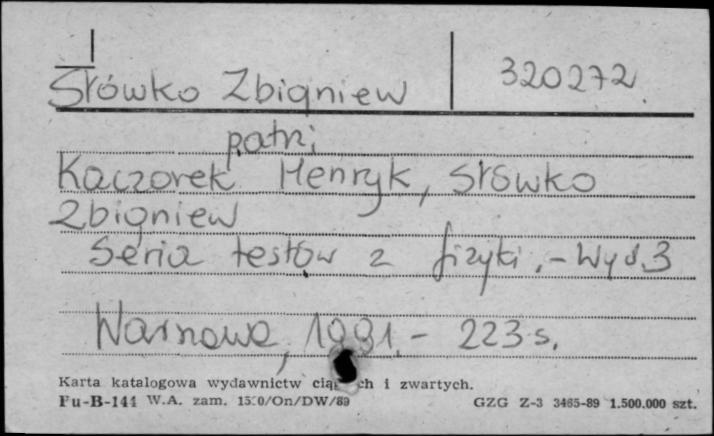 Słówko Zbigniew 320272
patrz
Kaczorek Henryk, Słówko
Zbigniew
Seria testów z fizyki.- Wyd.3
Warszawa, 1991.- 223 s.
Karta katalogowa wydawnictw i zwartych.
Pu-B-144 W.A. zam. /On/DW/89 GZG Z-3 3465-89 1.500.000 szt.